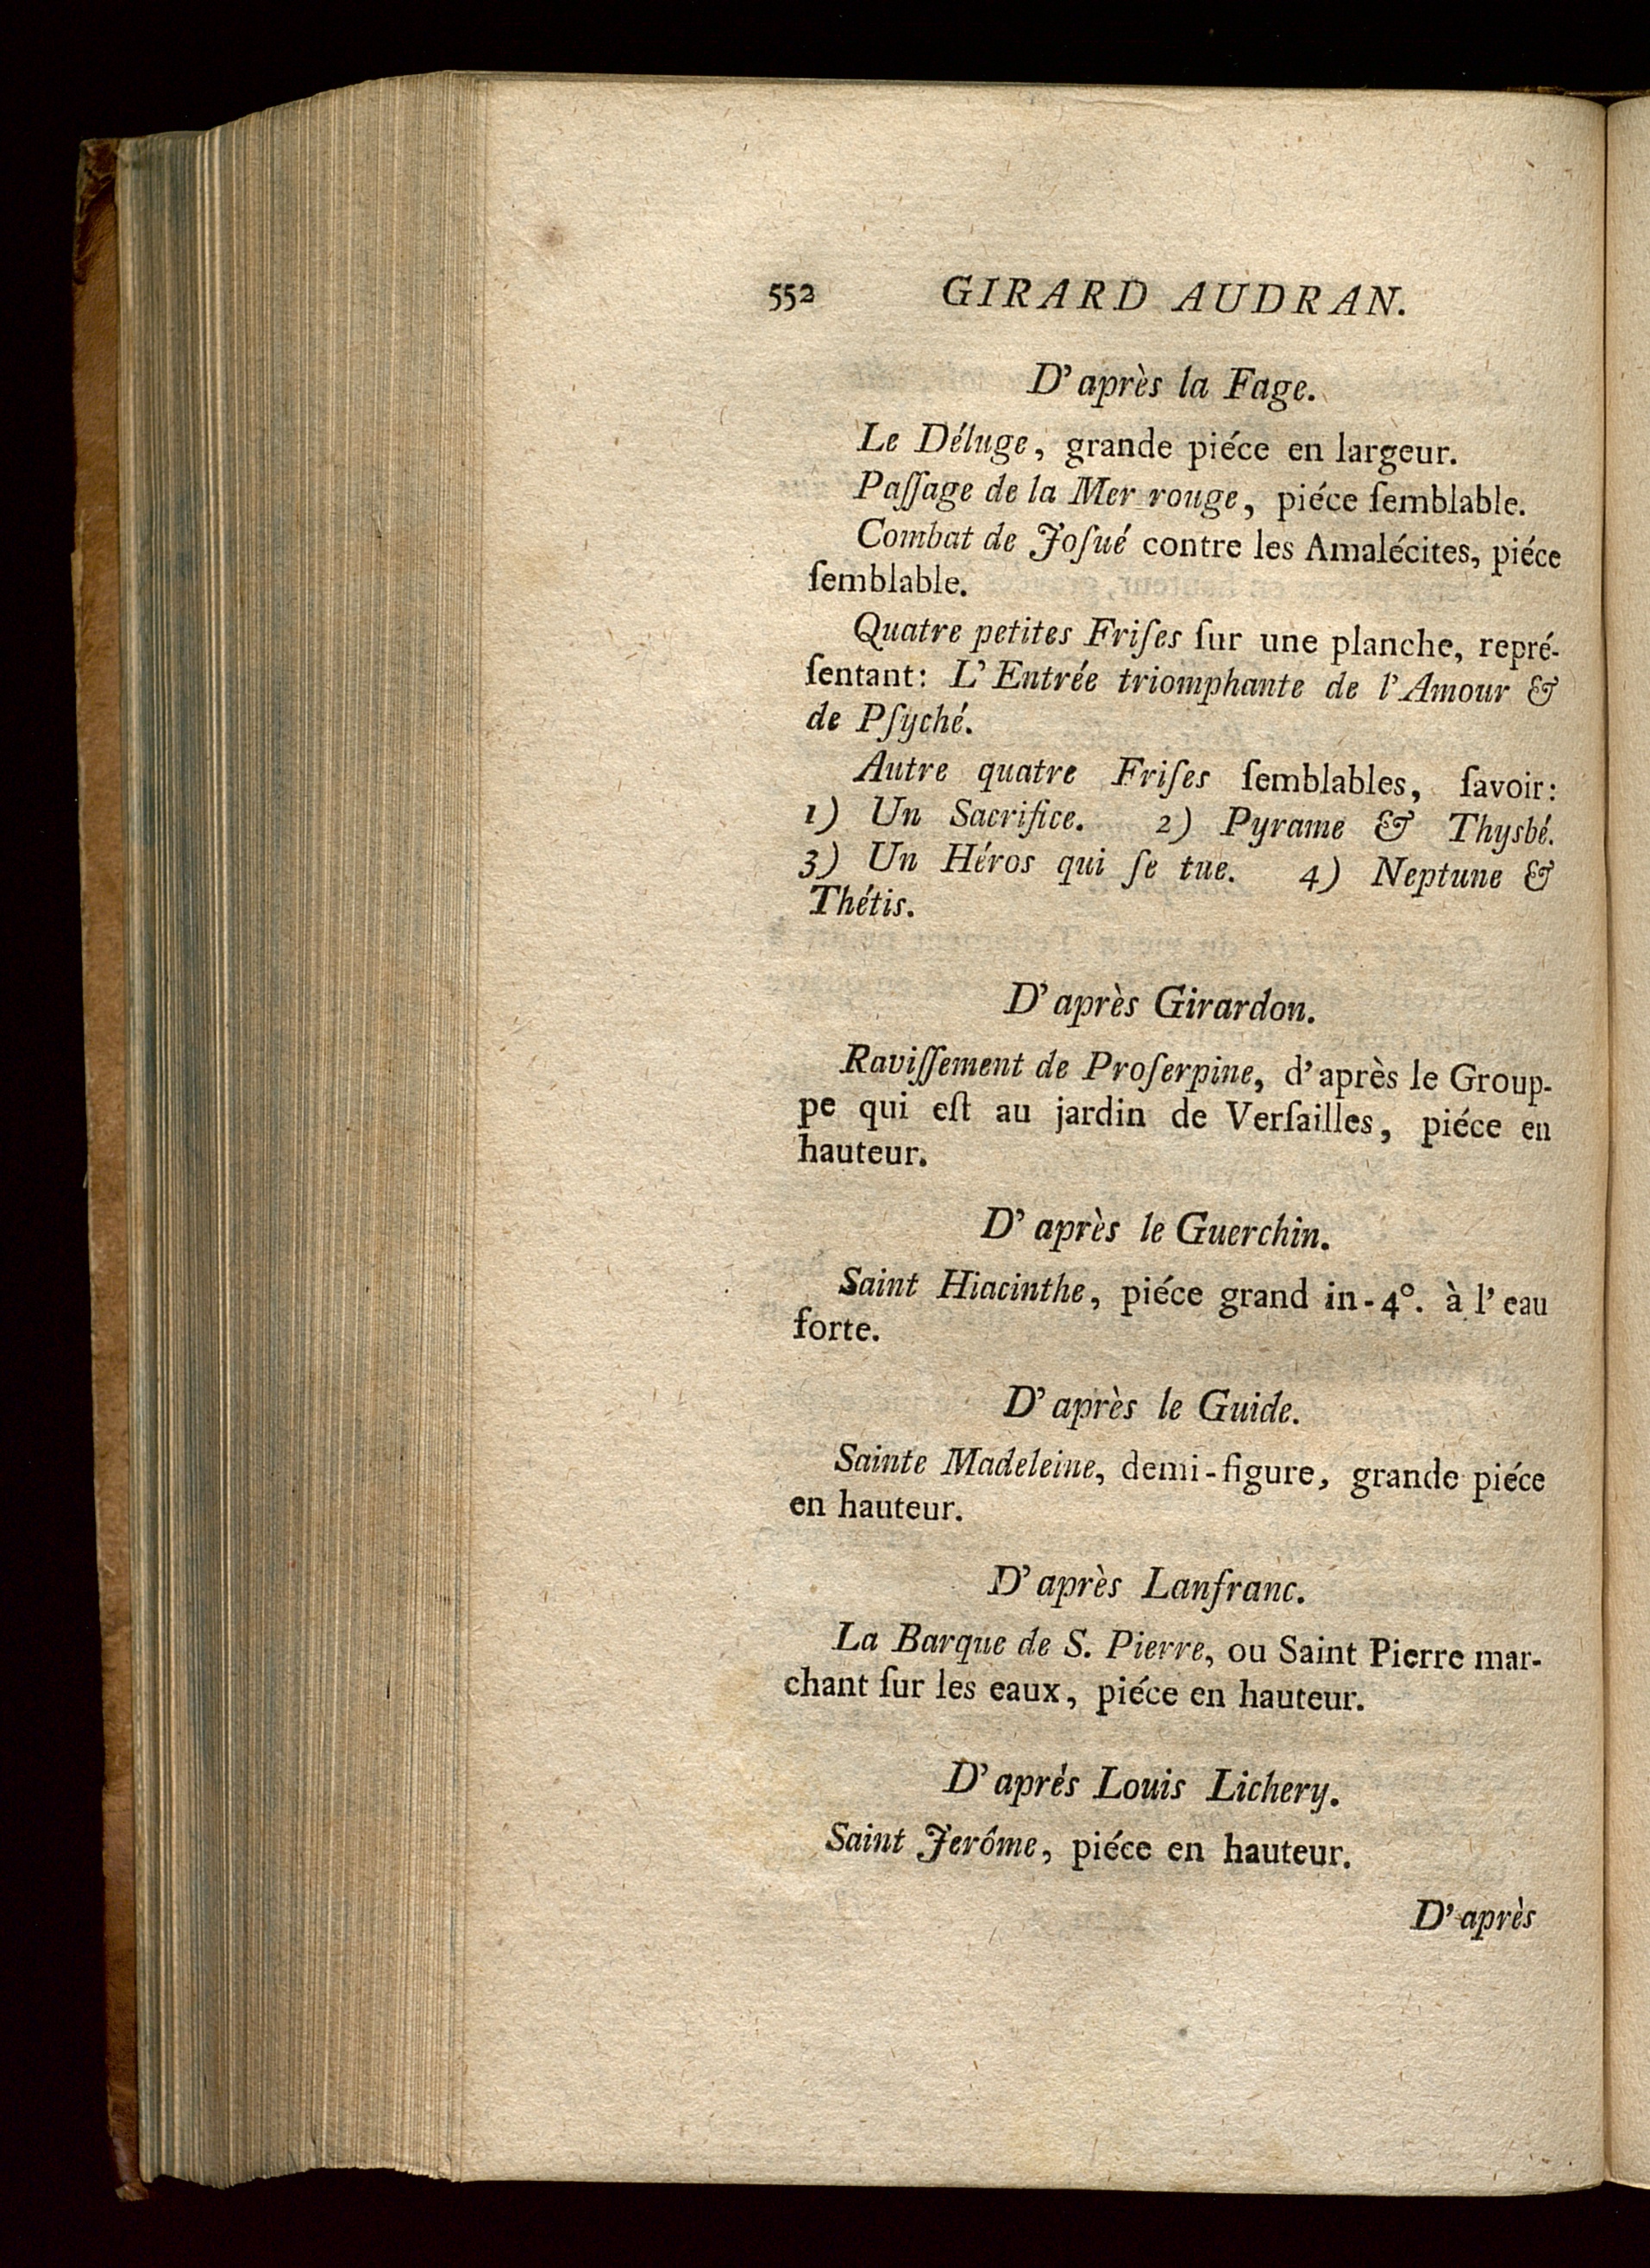 552 GIRARD AUDRAN.
D'après la Fage.
Le Déluge, grande piéce en largeur.
Paſſage de la Mer rouge, piéce ſemblable.
Combat de Joſué contre les Amalécites, piéce
ſemblable.
Quatre petites Friſes ſur une planche, repré-
ſentant: L'Entrée triomphante de l'Amour &
de Pſyché.
Autre quatre Friſes ſemblables, ſavoir:
1) Un Sacrifice. 2) Pyrame & Thysbé.
3) Un Héros qui ſe tue. 4) Neptune &
Thétis.
D'après Girardon.
Raviſſement de Proſerpine, d'après le Group-
pe qui eſt au jardin de Verſailles, piéce en
hauteur.
D'après le Guerchin.
Saint Hiacinthe, piéce grand in-4°. à l'eau
forte.
D'après le Guide.
Sainte Madeleine, demi-figure, grande piéce
en hauteur.
D'après Lanfranc.
La Barque de S. Pierre, ou Saint Pierre mar-
chant ſur les eaux, piéce en hauteur.
D'aprés Louis Lichery.
Saint Jerôme, piéce en hauteur.
D'après